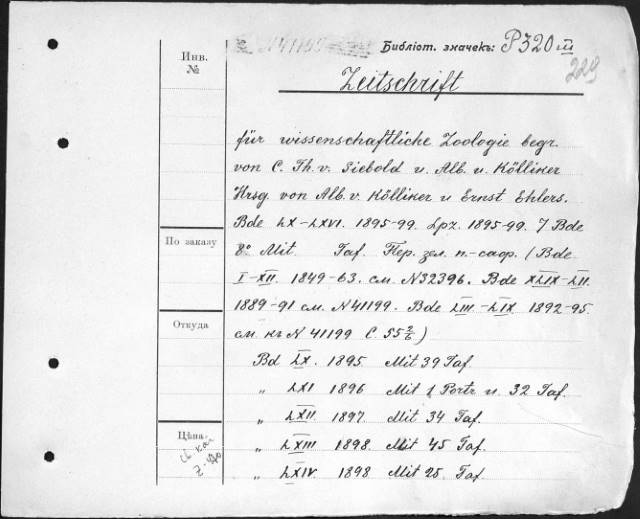 Инв.
№
N41199
Библіот. значекъ: P320 III
229
Zeitschrift
für wissenschaftliche Zoologie begr.
von C. Th. v. Siebold u. Alb. v. Kölliker
Hrsg. von Alb. v. Kölliker u Ernst Ehlers.
Bde LX-LXVI. 1895-99. Lpz. 1895-99. 7 Bde
По заказу
8° Mit. Taf. Пер. зел. п.-сафр. (Bde
I-XII. 1849-63. см. N32396. Bde XLIX-LII.
1889-91 см. N41199. Bde LIII-LIX 1892-95.
Откуда
см. къ N 41199 С. 55
Bd LX. 1895. Mit 39 Taf.
„ LXI 1896 Mit 1 Portr u. 32 Taf.
„ LXII. 1897. Mit 34 Taf.
Цѣна.
„ LXIII 1898. Mit 45 Taf.
„ LXIV. 1898. Mit 25. Taf.